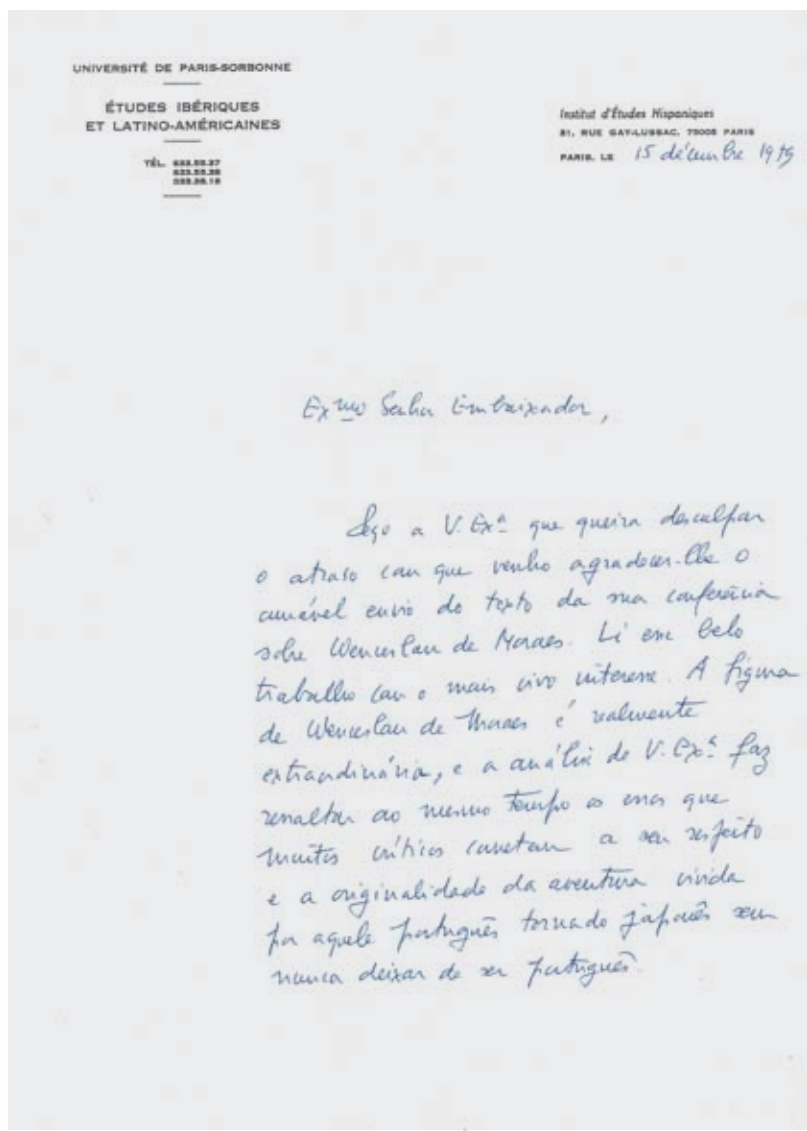 UNIVERSITÉ DE PARIS-SORBONNE
ÉTUDES IBÉRIQUES
ET LATINO-AMÉRICAINES
TÉL.
Institut d'Études Hispaniques
31, RUE GAY-LUSSAC, 75005 PARIS
PARIS, LE 15 décembre 1979
Exmo Senhor Embaixador,
Peço a V. Exª que queira desculpar
o atraso com que venho agradecer-lhe o
amável envio do texto da sua conferência
sobre Wenceslau de Moraes. Li esse belo
trabalho com o mais vivo interesse. A figura
de Wenceslau de Moraes é realmente
extraordinária, e a análise de V. Exª faz
ressaltar ao mesmo tempo os erros que
muitos críticos cometeram a seu respeito
e a originalidade da aventura vivida
por aquele português tornado japonês sem
nunca deixar de ser português.